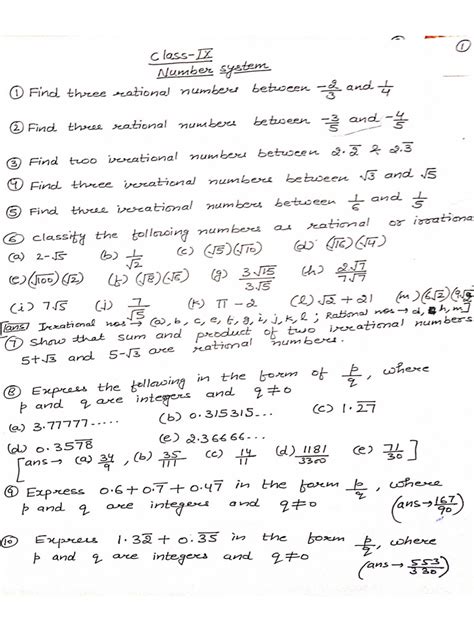 ①
Class-IX
Number system
① Find three rational numbers between -2/3 and 1/4
② Find three rational numbers between -3/5 and -4/5
③ Find two irrational numbers between 2.2̅ & 2.3̅
④ Find three irrational numbers between √3 and √5
⑤ Find three irrational numbers between 1/6 and 1/5
⑥ classify the following numbers as rational or irrationa
(a) 2-√5 (b) 1/√2 (c) (√5)(√10) (d) (√16)(√4)
(e) (√100)(√2) (f) (√8)(√6) (g) 3√15/3√5 (h) 2√7/7√7
(i) 7√5 (j) 7/√5 (k) π-2 (l) √2+21 (m) (6√2)
[ans] Irrational nos → (a, b, c, e, f, g, i, j, k, l ; Rational nos → d, h, m]
⑦ Show that sum and product of two irrational numbers
5+√3 and 5-√3 are rational numbers.
⑧ Express the following in the form of p/q, where
p and q are integers and q≠0
(a) 3.77777..... (b) 0.315315.... (c) 1.2̅7̅
(d) 0.357̅8̅ (e) 2.36666...
[ans → (a) 34/9, (b) 35/111 (c) 14/11 (d) 1181/3300 (e) 71/30]
⑨ Express 0.6+0.7̅+0.47̅ in the form p/q, where
p and q are integers and q≠0 (ans → 167/90)
⑩ Express 1.32̅ + 0.3̅5̅ in the form p/q, where
p and q are integers and q≠0 (ans → 553/330)